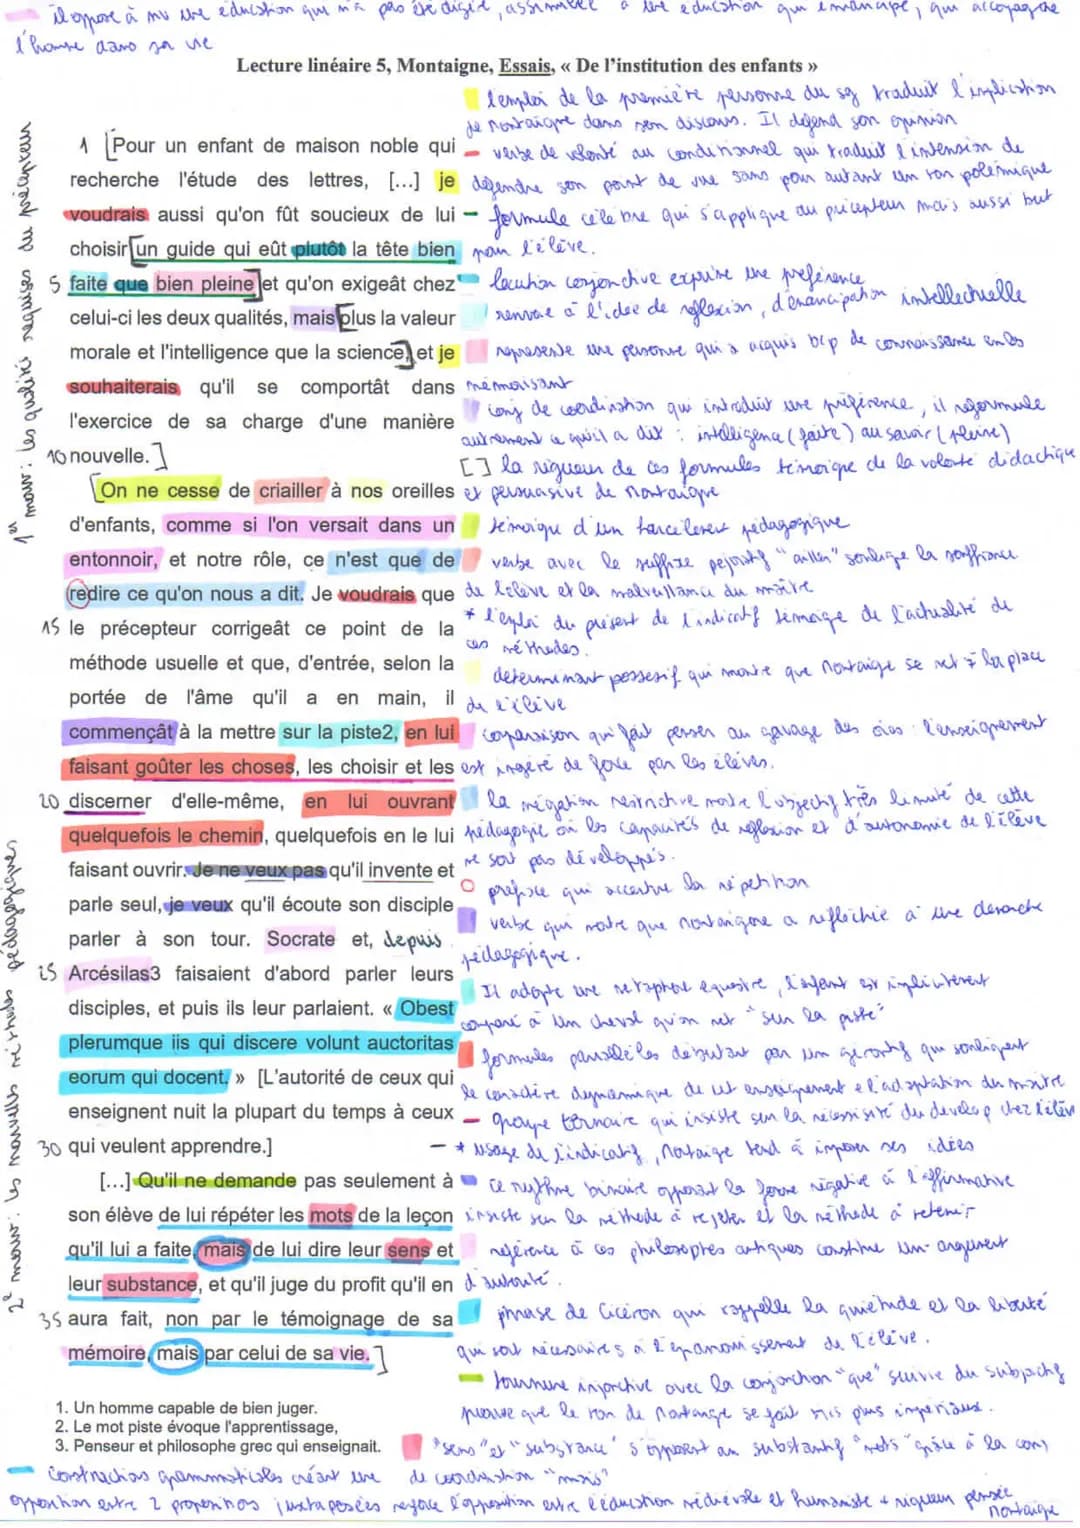 il oppose à mv une éducation qui n'a pas été digéré, assimilée à une éducation qui émancipe, qui accompagne
l'homme dans sa vie
Lecture linéaire 5, Montaigne, Essais, « De l'institution des enfants »
l'emploi de la première personne du sg traduit l'implication
de Montaigne dans son discours. Il défend son opinion
1 [Pour un enfant de maison noble qui
verbe de volonté au conditionnel qui traduit l'intension de
recherche l'étude des lettres, [...] je
défendre son point de vue sans pour autant un ton polémique
voudrais aussi qu'on fût soucieux de lui
formule célèbre qui s'applique au précepteur mais aussi but
choisir [un guide qui eût plutôt la tête bien
pour l'élève.
5 faite que bien pleine] et qu'on exigeât chez
locution conjonctive exprime une préférence
celui-ci les deux qualités, mais [plus la valeur
renvoie à l'idée de réflexion, d'émancipation intellectuelle
morale et l'intelligence que la science,] et je
représente une personne qui a acquis bcp de connaissance en les
souhaiterais qu'il se comportât dans
mémorisant
l'exercice de sa charge d'une manière
conj de coordination qui introduit une préférence, il reformule
autrement ce qu'il a dit : intelligence (faite) au savoir (pleine)
10 nouvelle. ]
[] la rigueur de ces formules témoigne de la volonté didactique
[On ne cesse de criailler à nos oreilles
et persuasive de Montaigne
d'enfants, comme si l'on versait dans un
témoigne d'un harcèlement pédagogique
entonnoir, et notre rôle, ce n'est que de
verbe avec le suffixe péjoratif "ailler" souligne la souffrance
redire ce qu'on nous a dit. Je voudrais que
de l'élève et la malveillance du maître
15 le précepteur corrigeât ce point de la
* l'emploi du présent de l'indicatif témoigne de l'actualité de
ces méthodes.
méthode usuelle et que, d'entrée, selon la
déterminant possessif qui montre que Montaigne se met à la place
portée de l'âme qu'il a en main, il
de l'élève
commençât à la mettre sur la piste2, en lui
comparaison qui fait penser au gavage des oies : l'enseignement
faisant goûter les choses, les choisir et les
est ingéré de force par les élèves.
20 discerner d'elle-même, en lui ouvrant
la négation restrictive montre l'objectif très limité de cette
quelquefois le chemin, quelquefois en le lui
pédagogie où les capacités de réflexion et d'autonomie de l'élève
ne sont pas développés.
faisant ouvrir. Je ne veux pas qu'il invente et
préfixe qui accentue la répétition
parle seul, je veux qu'il écoute son disciple
verbe qui montre que Montaigne a réfléchie à une démarche
parler à son tour. Socrate et, depuis
pédagogique.
25 Arcésilas3 faisaient d'abord parler leurs
Il adopte une métaphore équestre, l'enfant est implicitement
disciples, et puis ils leur parlaient. « Obest
comparé à un cheval qu'on met "sur la piste"
plerumque iis qui discere volunt auctoritas
formules parallèles débutant par un gérondif qui soulignent
eorum qui docent. » [L'autorité de ceux qui
le caractère dynamique de cet enseignement et l'adaptation du maître
enseignent nuit la plupart du temps à ceux
groupe ternaire qui insiste sur la nécessité du develop chez l'élève
30 qui veulent apprendre.]
* usage de l'indicatif, Montaigne tend à imposer ses idées
[...] Qu'il ne demande pas seulement à
ce rythme binaire opposant la forme négative à l'affirmative
son élève de lui répéter les mots de la leçon
insiste sur la méthode à rejeter et la méthode à retenir
qu'il lui a faite, mais de lui dire leur sens et
référence à ces philosophes antiques constitue un argument
leur substance, et qu'il juge du profit qu'il en
d'autorité.
35 aura fait, non par le témoignage de sa
phrase de Cicéron qui rappelle la quiétude et la liberté
mémoire, mais par celui de sa vie. ]
qui sont nécessaires à l'épanouissement de l'élève.
tournure injonctive avec la conjonction "que" suivie du subjonctif
1. Un homme capable de bien juger.
prouve que le ton de Montaigne se fait plus impérieux.
2. Le mot piste évoque l'apprentissage,
3. Penseur et philosophe grec qui enseignait.
"sens" et "substance" s'opposent au substantif "mots" grâce à la conj
de coordination "mais"
constructions grammaticales créant une
opposition entre 2 propositions juxtaposées renforce l'opposition entre l'éducation médiévale et humaniste + rigueur pensée
Montaigne
1er mouv : les qualités requises du précepteur
2e mouv : les nouvelles méthodes pédagogiques